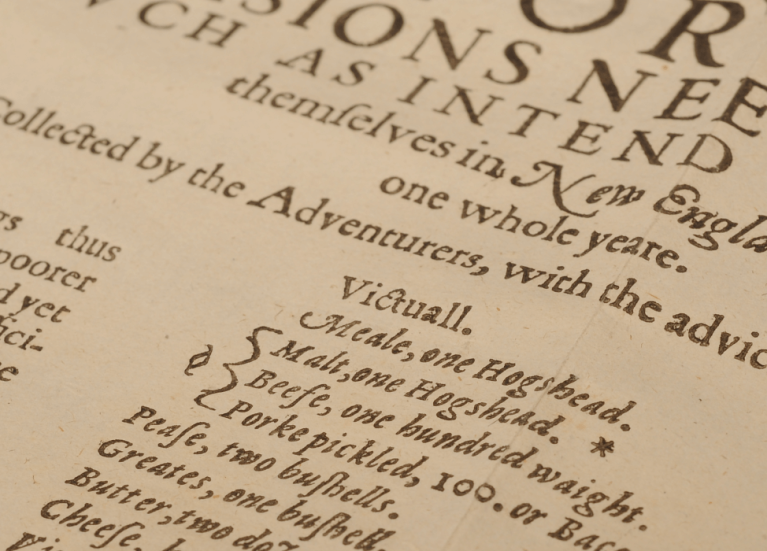 OR
SIONS NEE
VCH AS INTEND
themſelves in New Engla
one whole yeare.
Collected by the Adventurers, with the advic
thus
poorer
d yet
Victuall.
Meale, one Hogshead.
Malt, one Hogshead.
Beeſe, one hundred waight.
Porke pickled, 100. or Bac
*
Peaſe, two buſhells.
Greates, one buſhell.
Butter, two doz
Cheeſe,